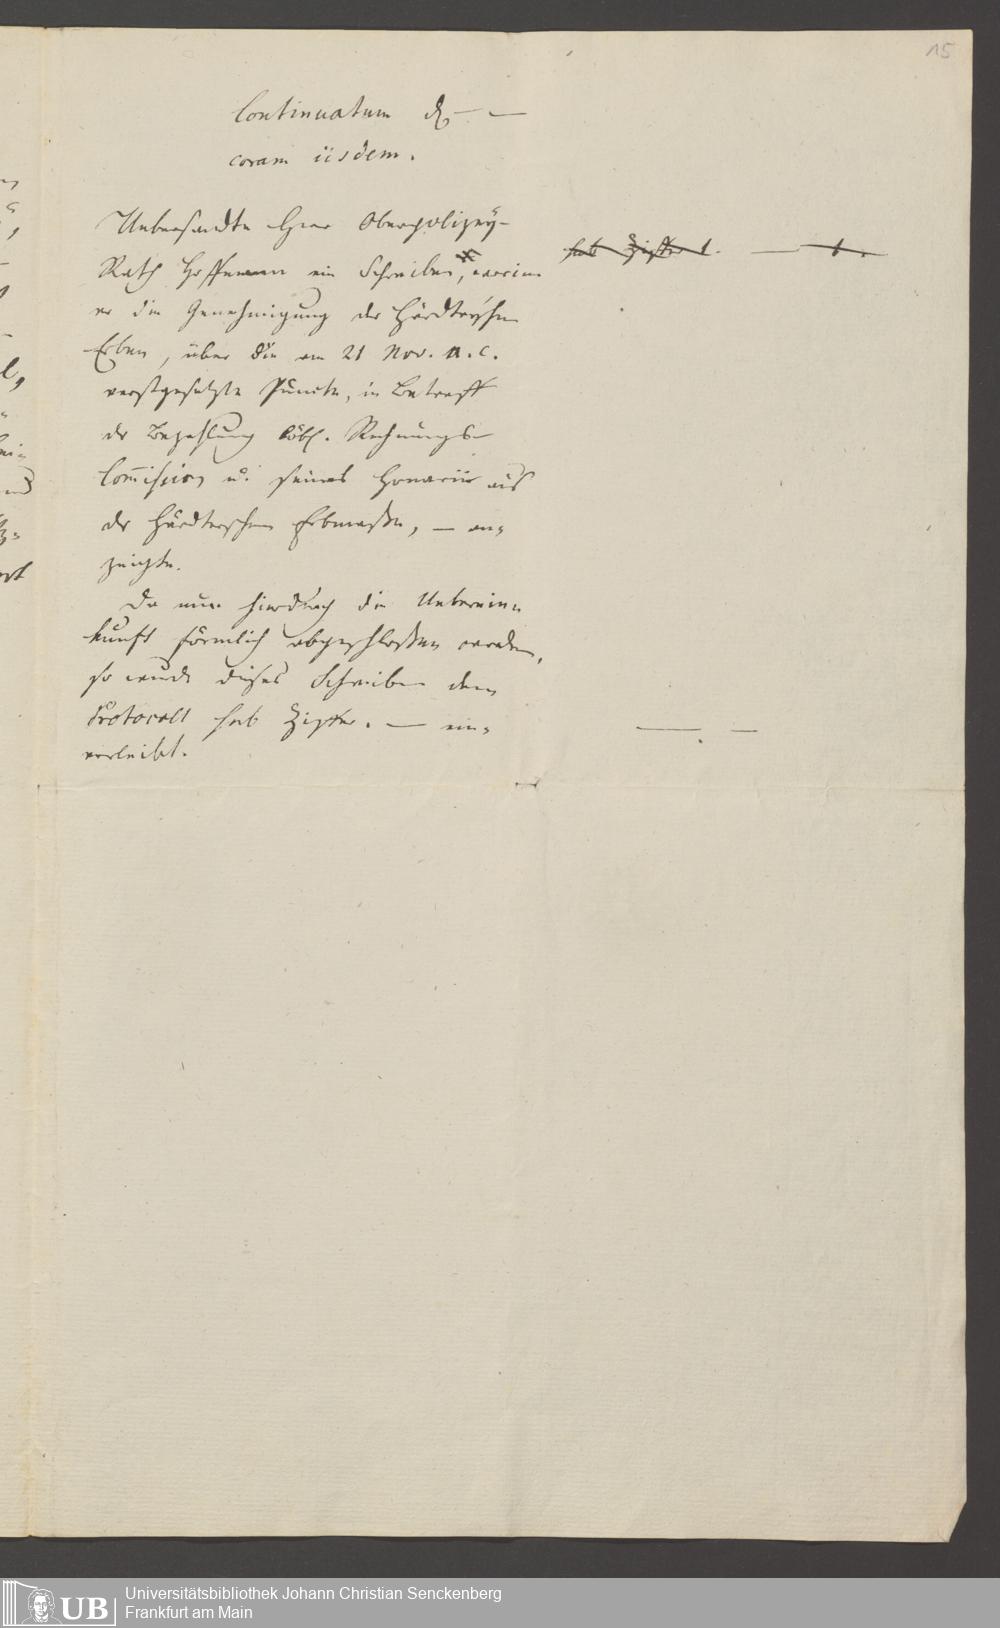 15
Continuatum d. — —
coram iisdem.
Uebersandte Herr Oberpolizey-
Rath Hoffmann ein Schreiben, worin
er die Genehmigung der Härdterschen
Erben, über die am 21 Nov. a. c.
vestgesetzte Puncte, in Betreff
der Bezahlung löbl. Rechnungs-
Commission u. seines Honorariis aus
der Härdterschen Erbmasse, — an-
zeigte.
sub Ziffer 1. — 1.
Da nun hierdurch die Ueberein-
kunft förmlich abgeschlossen worden,
so wurde dieses Schreiben dem
Protocoll sub Ziffer. — ein-
verleibt.
— . —
UB
Universitätsbibliothek Johann Christian Senckenberg
Frankfurt am Main